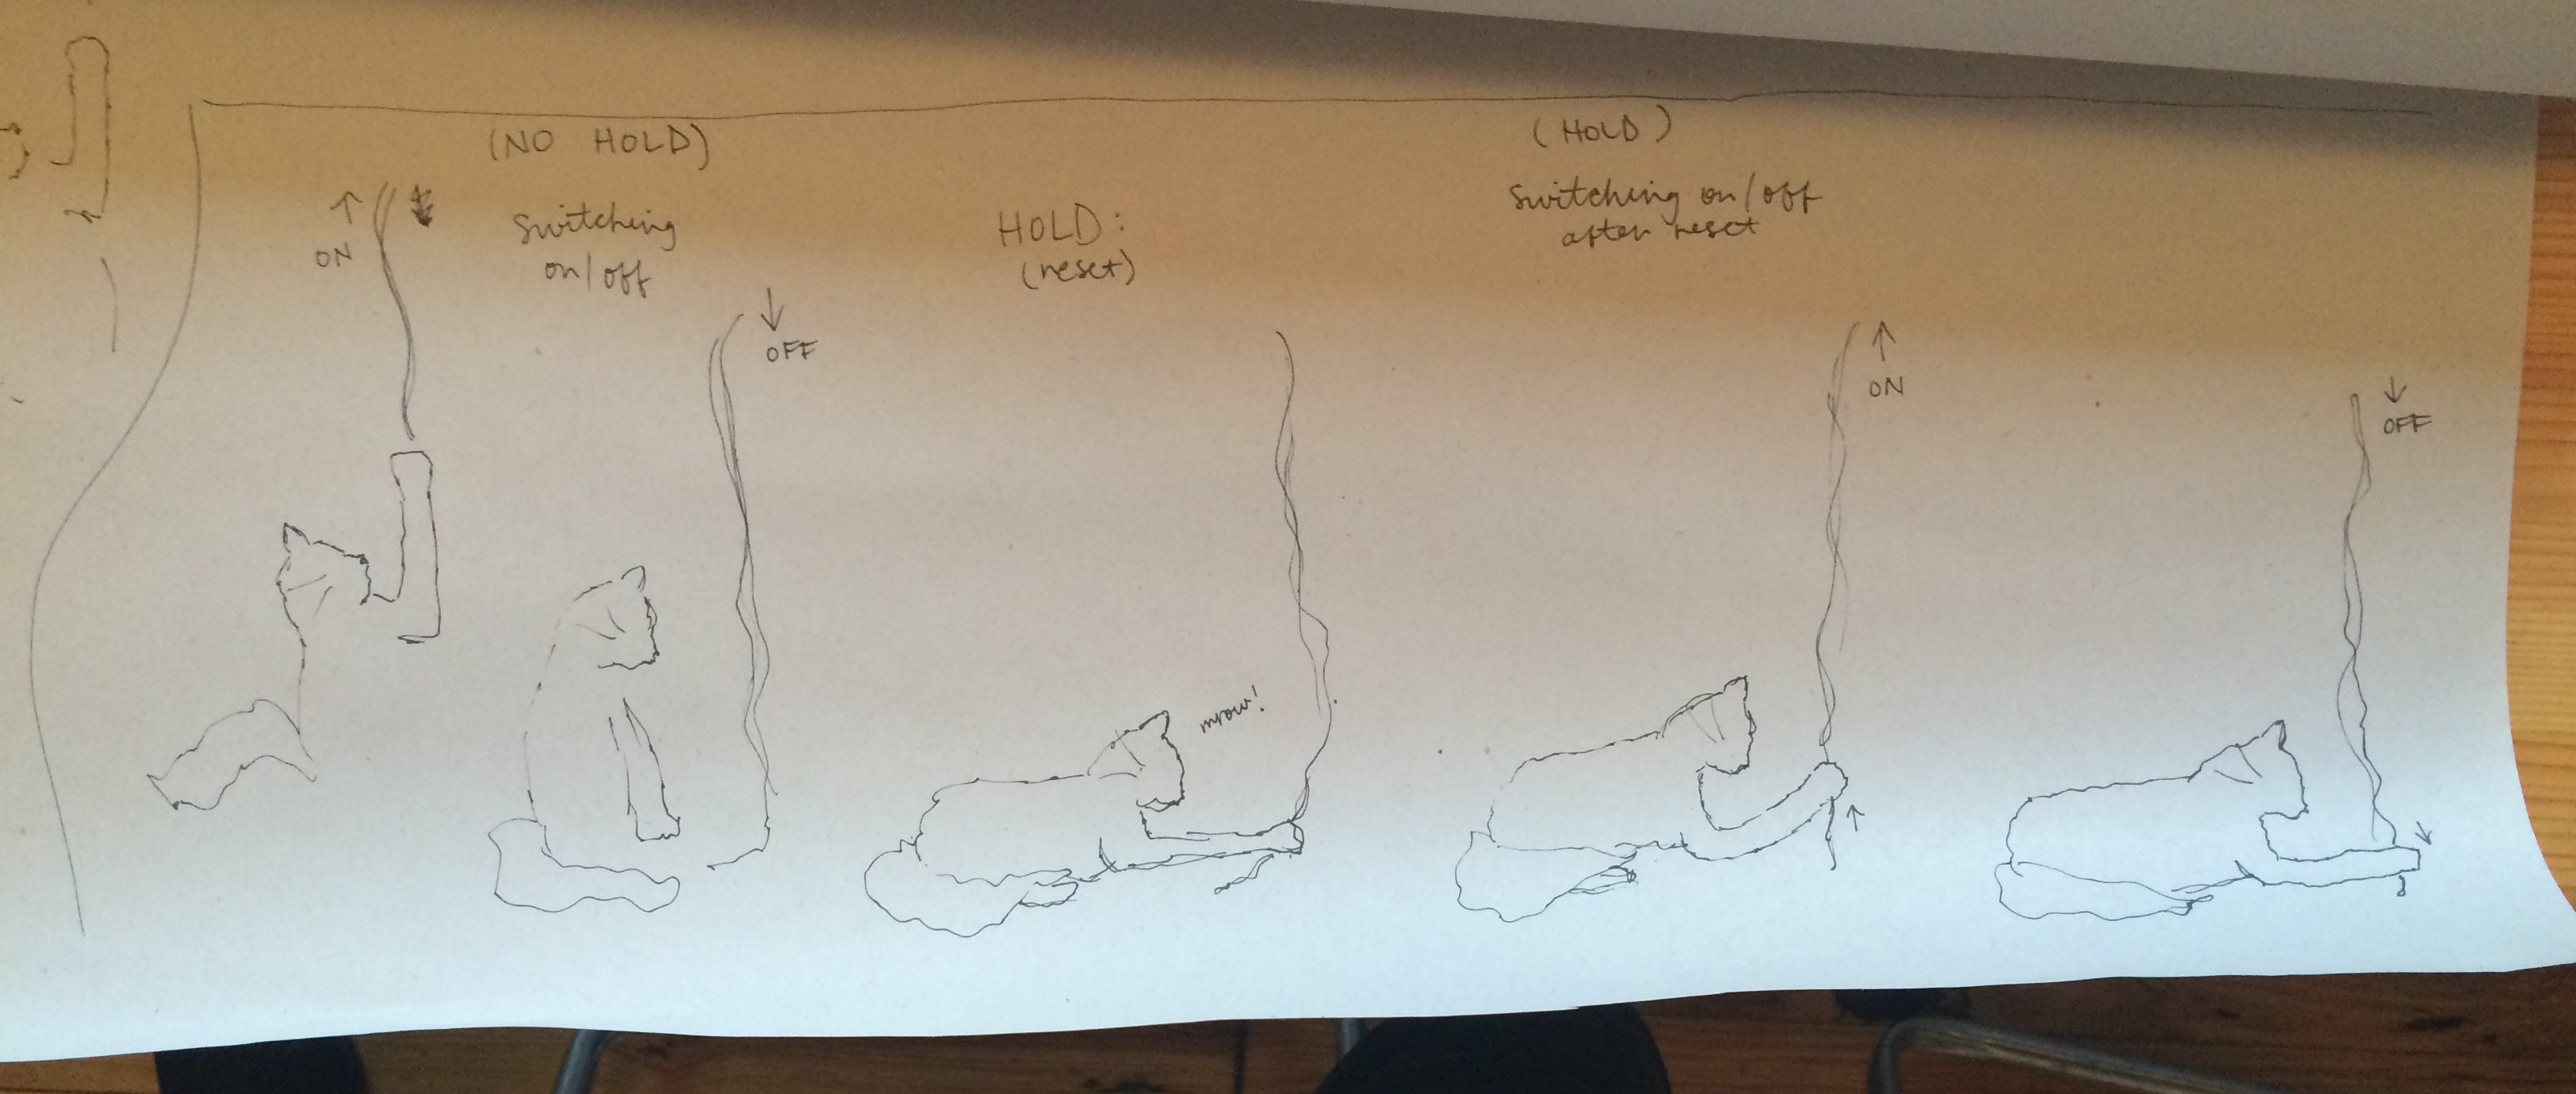 (NO HOLD)
↑
ON
Switching
on/off
↓
OFF
HOLD:
(reset)
mrow!
(HOLD)
Switching on/off
after reset
↑
ON
↑
↓
OFF
↓